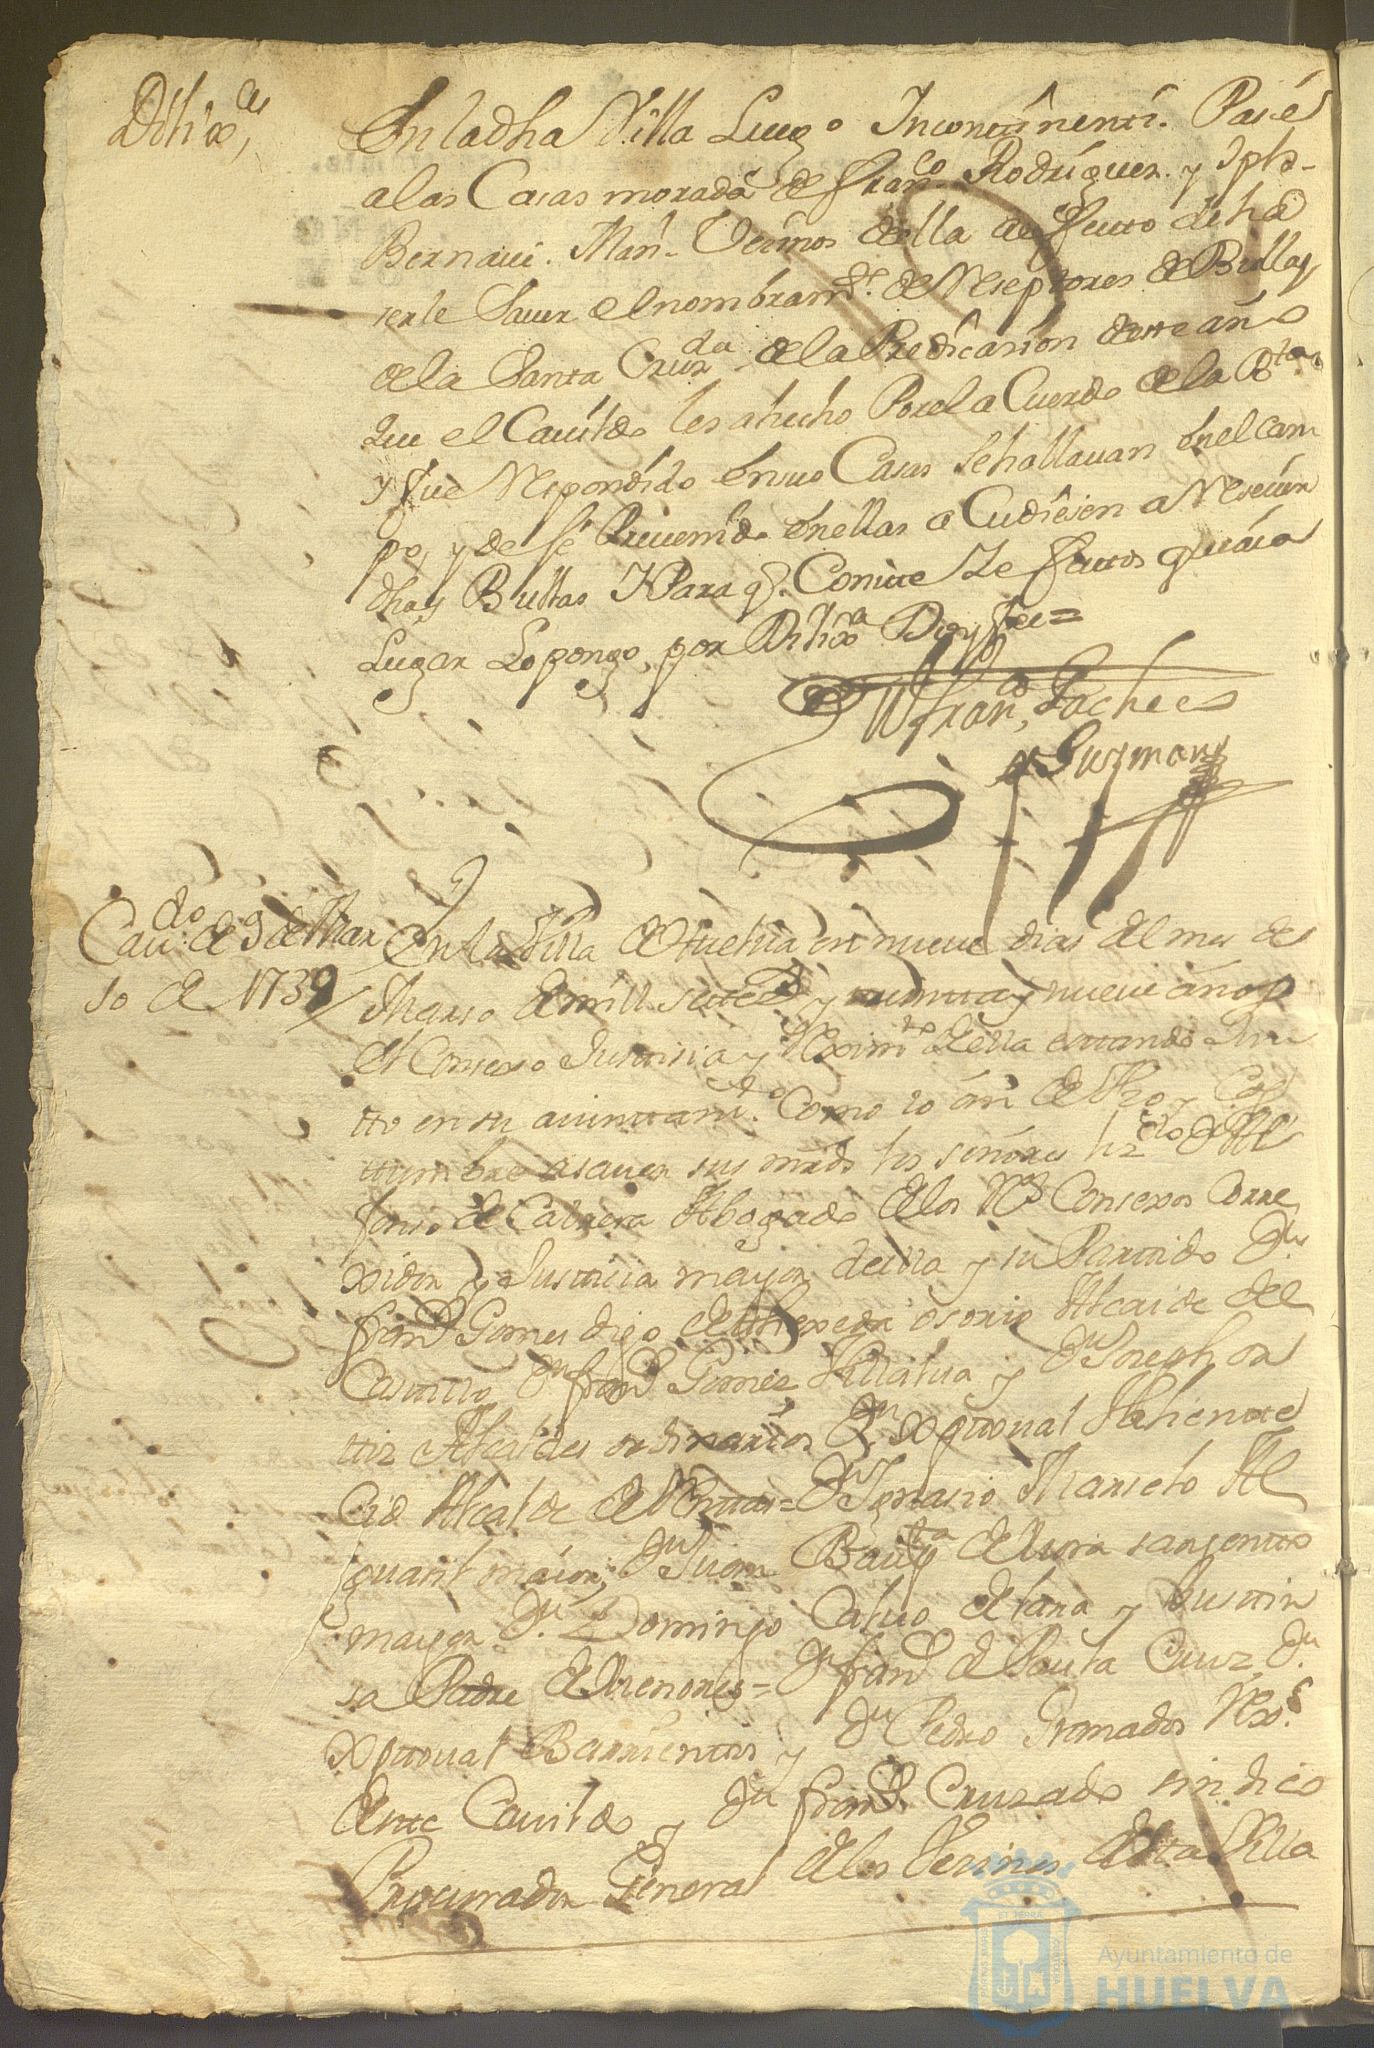 Dilix.as
En la dha Villa Luego Incontinenti. Pasé
a las Casas morada de Fran.co Rodriguez. y Jph
Bernaui. Marn. Vecinos della a efecto de ha
serle Sauer el nombram.to de Reseptores de Bullas
de la Santa Cruzda de la Predicasion deste año
que el Cauildo les a hecho Por el aCuerdo de la B.ta
y fue Respondido en sus Casas se hallauan en el Cam
po, y de fe Preuenido en ellas aCudiesen a Reseuir
dhas Bullas Y Para q. Conste
Lugar Lo pongo, por Dilixa Doy fee=
Fran.co Pacheco
y Guzman
Cau.do de 9 de Mar
so de 1739
En la Villa de Huelua en nueue dias del mes de
Marso de mill setec.s y treinta y nueue años
el Consexo Justisia y Rexim.to della estando Jun
tto en su aiuntam.to Como lo án de Vso y Cos
tumbre asauer sus mrds los señores lizdo Dn Al
fonso de Cabrera Abogado de los R.s Consexos Corre
xidor y Justicia mayor della y su Partido D.n
fran.co Gomes digo de Heredia osorio Alcaide del
Castillo Dn fran.co Gomez Villalua y Dn Joseph or
tiz Alcaldes ordinarios Dn Xptoual
Cid Alcalde de Rentas= Dn Ignasio Marselo Al
guasil maior; Dn Juan Bauta de Mora sargento
mayor D.n Domingo Caluo de lara y
sa Padre de Menores= Dn fran.co de Paula Cruz D.n
Xptoual Barrientos y Dn Pedro Granados Rex.s
deste Cauildo y Dn fran.co Cruzado sindico
Procurador General de los Vesinos desta Villa
Ayuntamiento de
HUELVA